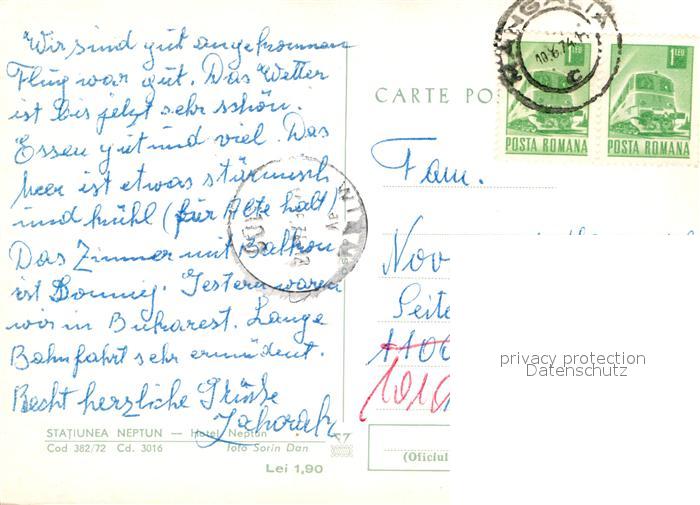 Wir sind gut angekommen
Flug war gut. Das Wetter
ist bis jetzt sehr schön.
Essen gut und viel. Das
Meer ist etwas stürmisch
und kühl (für Alte halt)
Das Zimmer mit Balkon
ist sonnig. Gestern waren
wir in Bukarest. Lange
Bahnfahrt sehr ermüdent.
Recht herzliche Grüße
STAȚIUNEA NEPTUN — Hotel Neptun
Cod 382/72 Cd. 3016 foto Sorin Dan
Lei 1,90
MANGALIA
10.6.74
C
1 LEU
POSTA ROMANA
1 LEU
POSTA ROMANA
CARTE PO
Fam.
Nov
Seite
1100
1019
(Oficiul
privacy protection
Datenschutz